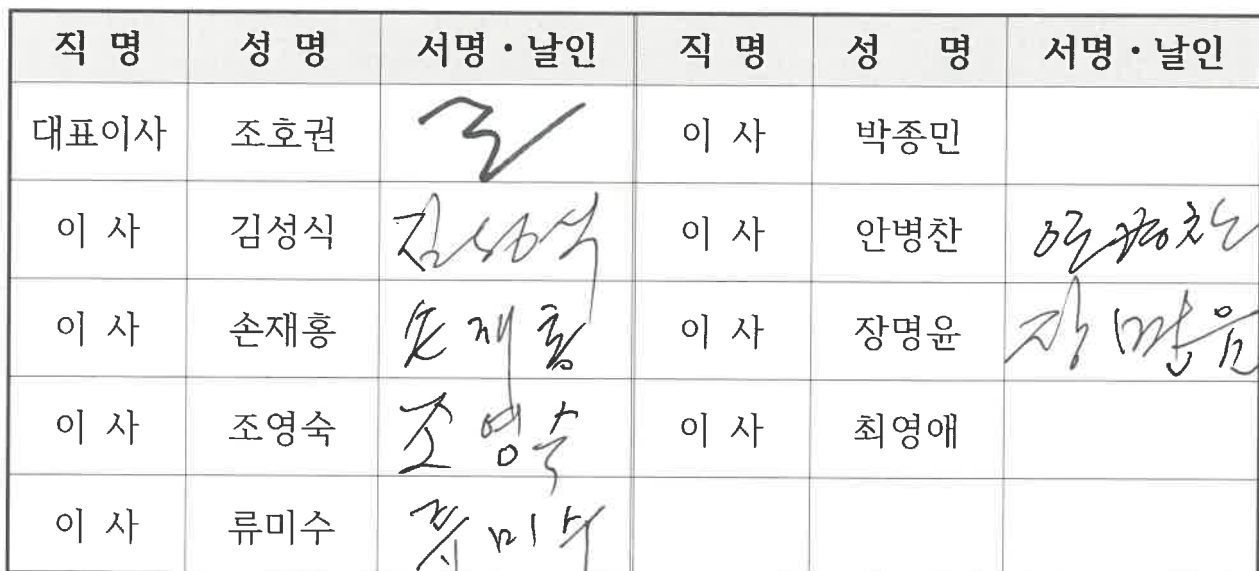 직 명 성 명 서명·날인 직 명 성 명 서명·날인
대표이사 조호권 이 사 박종민
이 사 김성식 김성식 이 사 안병찬 안병찬
이 사 손재홍 손재홍 이 사 장명윤 장명윤
이 사 조영숙 조영숙 이 사 최영애
이 사 류미수 류미수